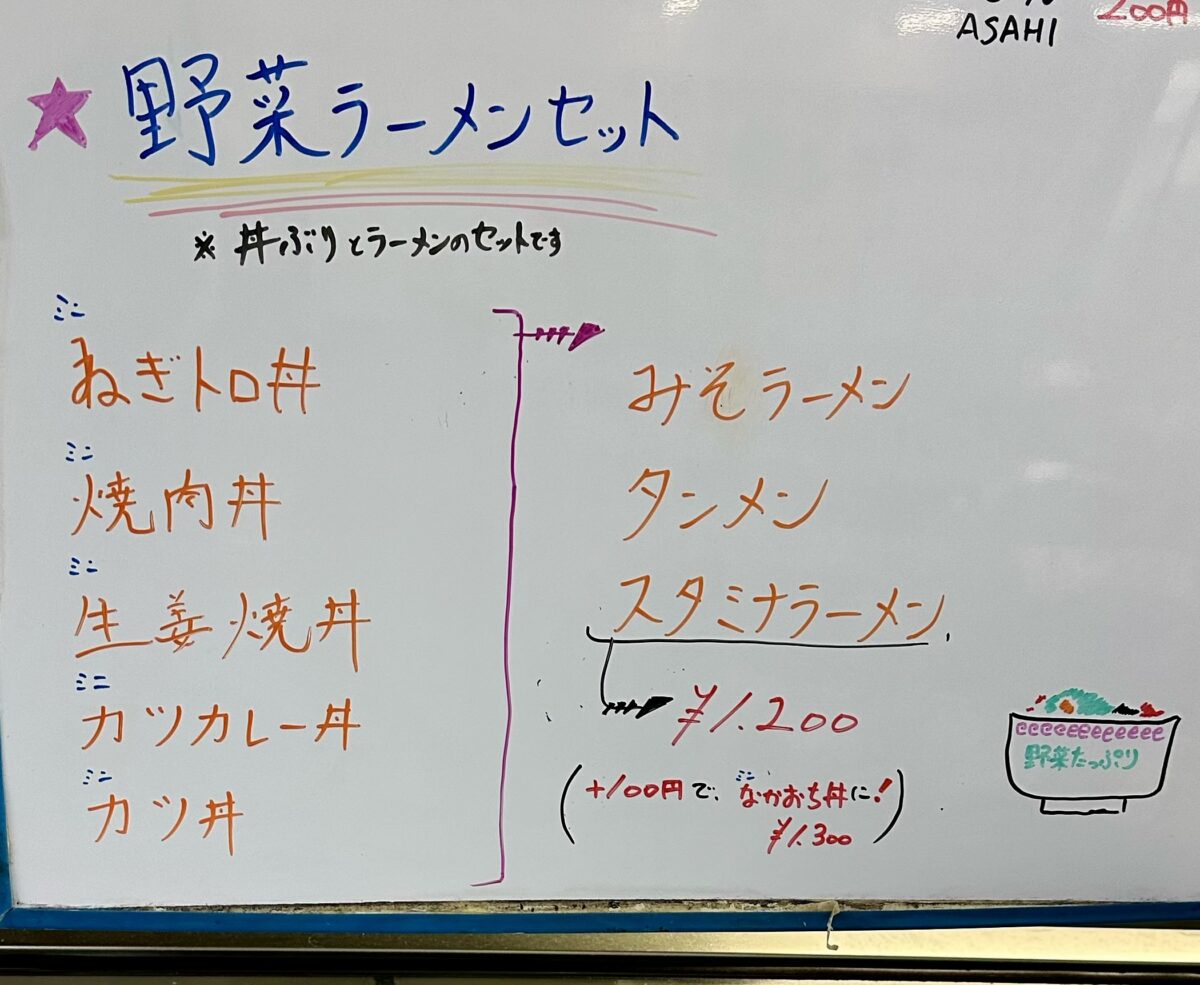 ASAHI 200円
★ 野菜ラーメンセット
※ 丼ぶりとラーメンのセットです
ミニ
ねぎトロ丼
ミニ
焼肉丼
ミニ
生姜焼丼
ミニ
カツカレー丼
ミニ
カツ丼
みそラーメン
タンメン
スタミナラーメン
¥1.200
(+100円で、ミニなかおち丼に!
¥1.300)
野菜たっぷり